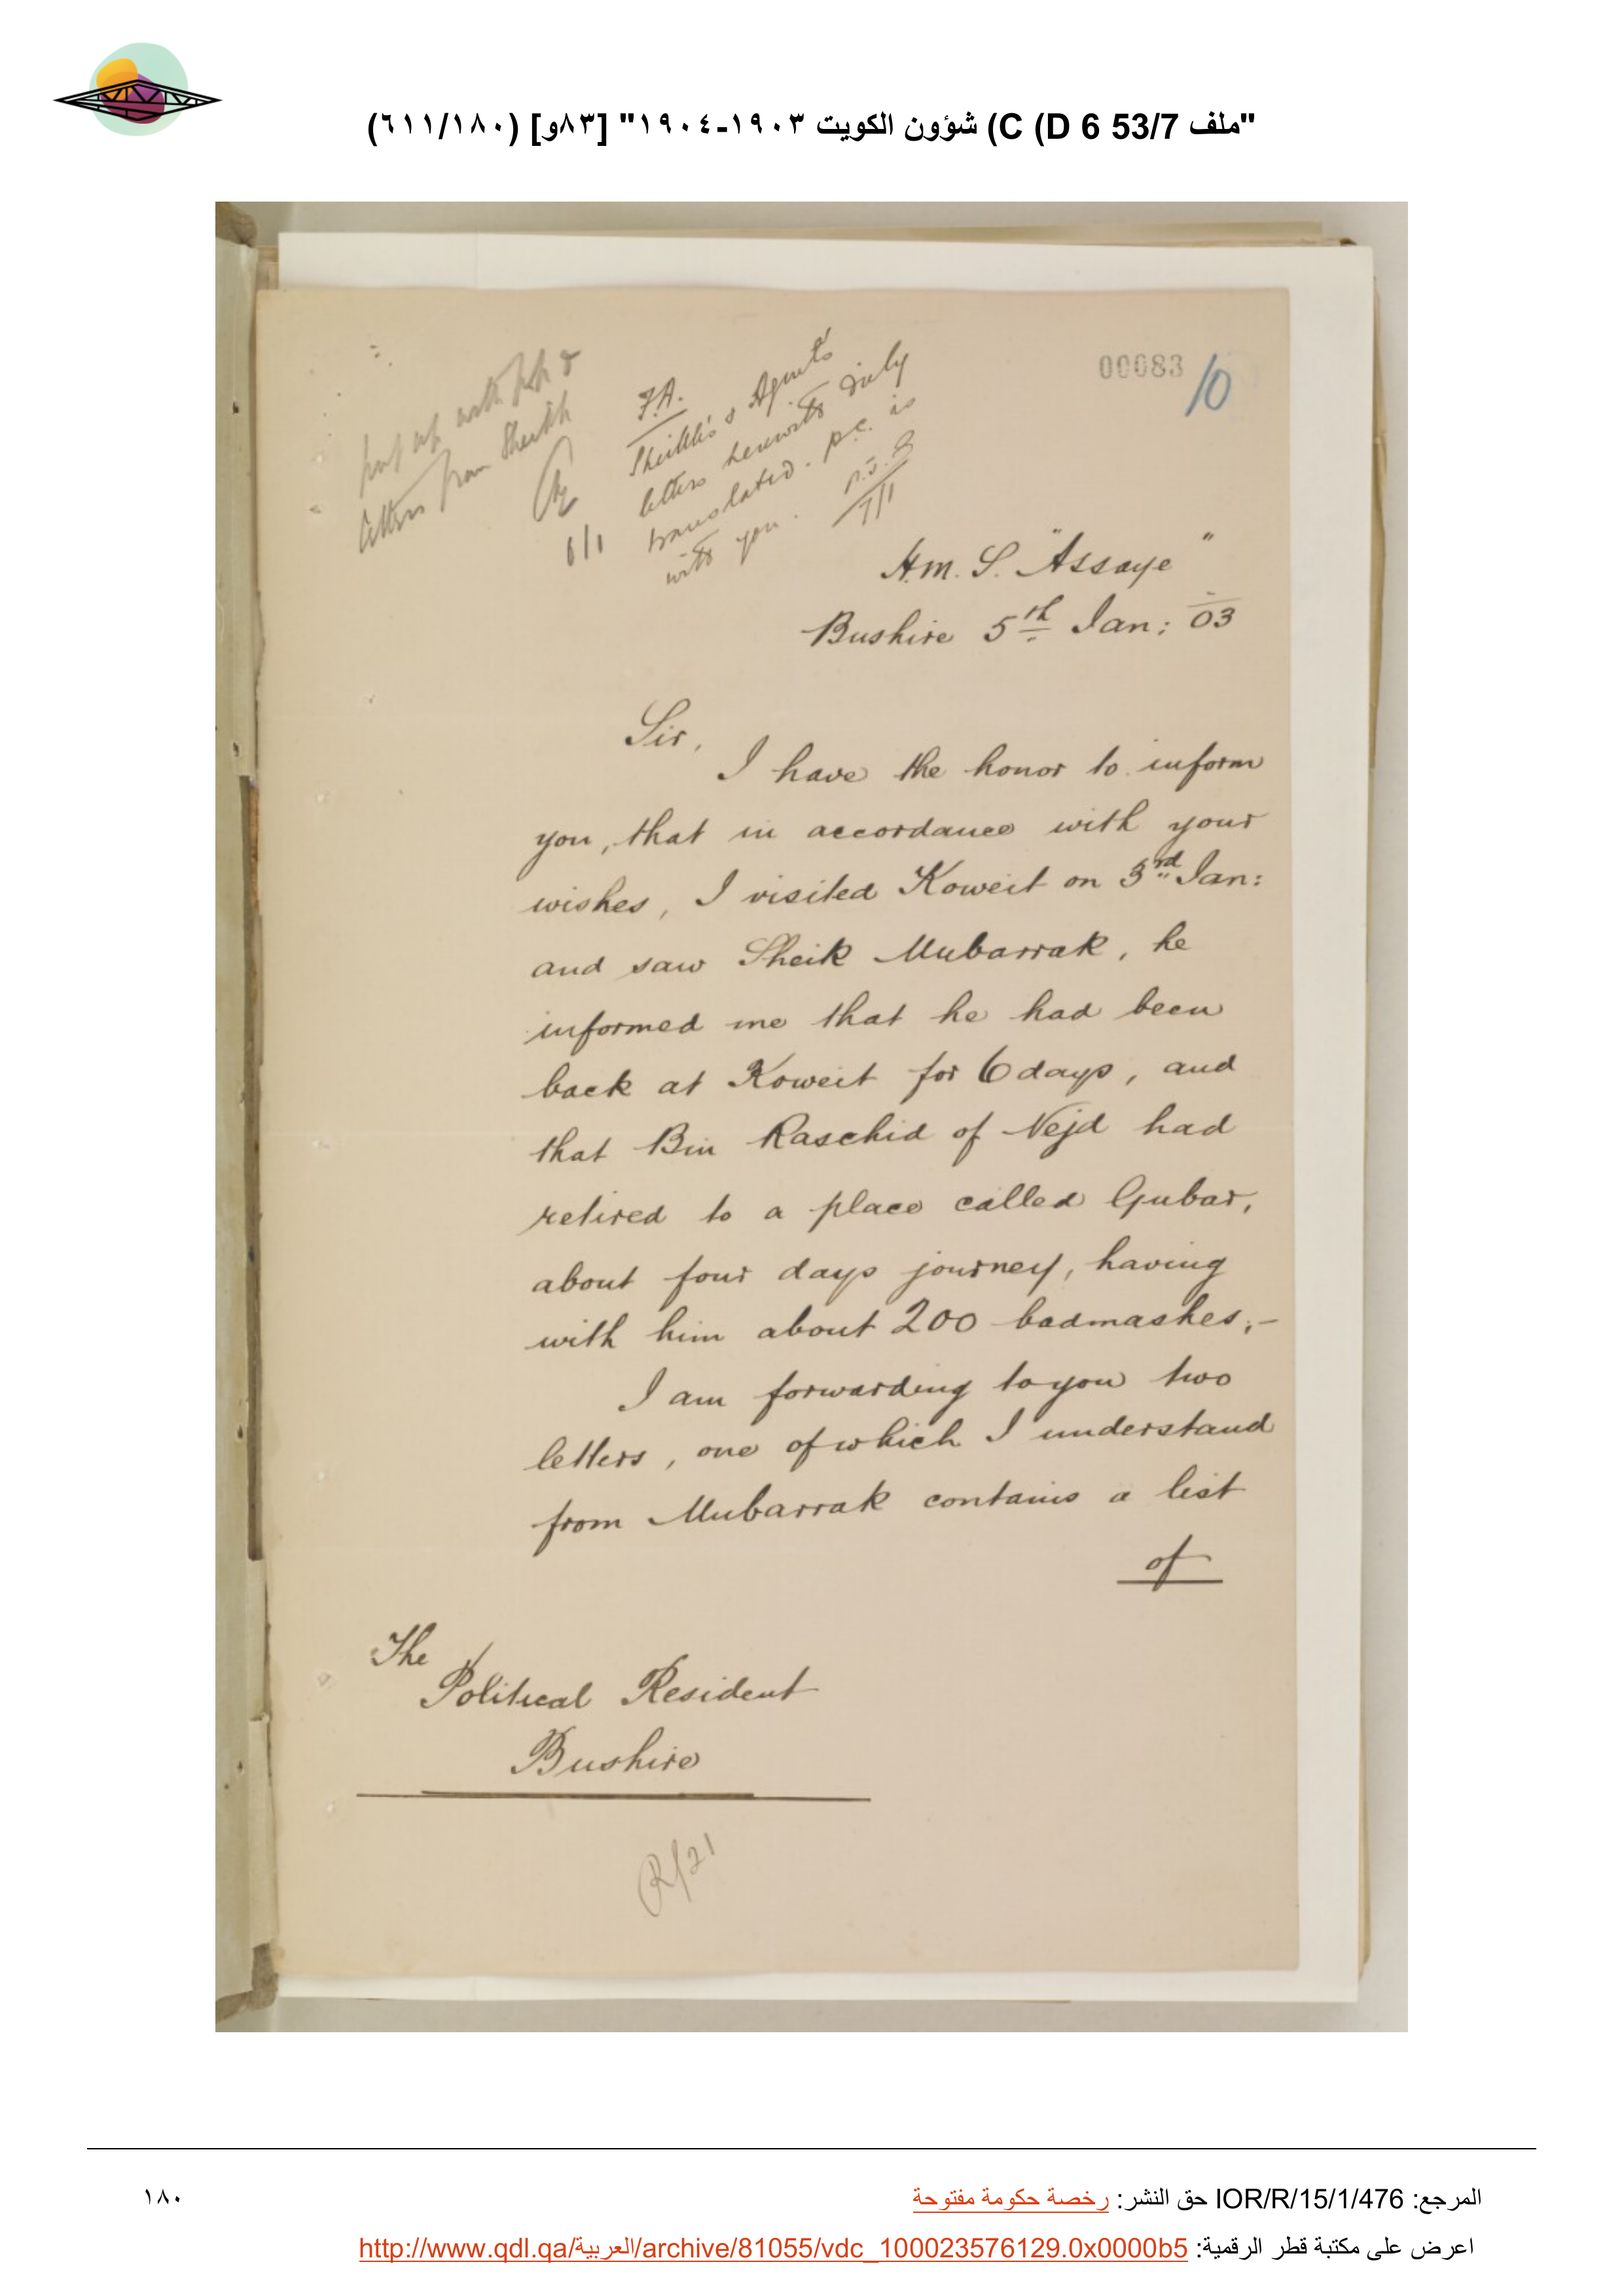 "ملف 53/7 D 6) C) شؤون الكويت ١٩٠٣-١٩٠٤" [٨٣و] (٦١١/١٨٠)
put up with
letters from Sheikh
6/1
F.A.
Sheikh's & Agent's
letters herewith duly
translated. p.c. is
with you.
7/1
00083
10
H.M.S. "Assaye"
Bushire 5th Jan: 03
Sir,
I have the honor to inform
you, that in accordance with your
wishes, I visited Koweit on 3rd Jan:
and saw Sheik Mubarrak, he
informed me that he had been
back at Koweit for 6 days, and
that Bin Raschid of Nejd had
retired to a place called Gubar,
about four days journey, having
with him about 200 badmashes;-
I am forwarding to you two
letters, one of which I understand
from Mubarrak contains a list
of
The
Political Resident
Bushire
R/21
المرجع: IOR/R/15/1/476 حق النشر: رخصة حكومة مفتوحة
١٨٠
اعرض على مكتبة قطر الرقمية: http://www.qdl.qa/العربية/archive/81055/vdc_100023576129.0x0000b5